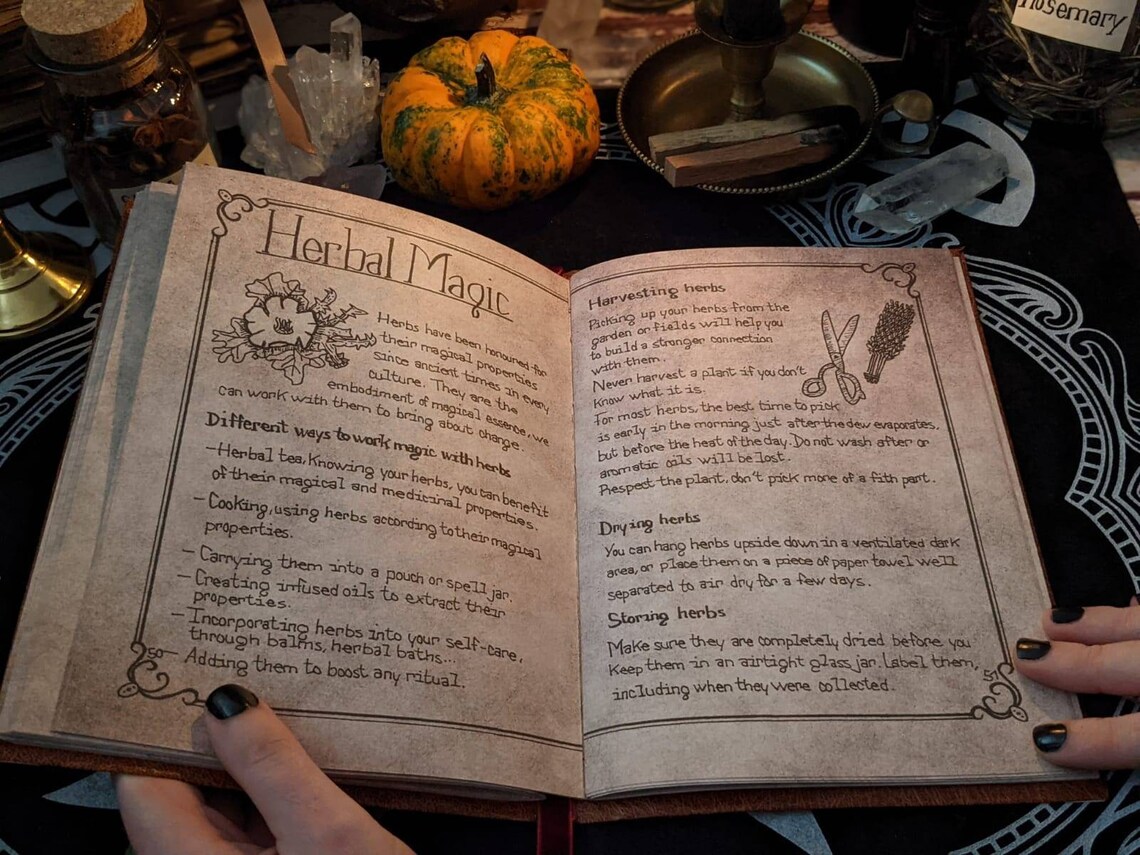 rosemary
Herbal Magic
Herbs have been honoured for
their magical properties
since ancient times in every
culture. They are the
embodiment of magical essence, we
can work with them to bring about change.
Different ways to work magic with herbs
-Herbal tea, Knowing your herbs, you can benefit
of their magical and medicinal properties.
- Cooking, using herbs according to their magical
properties.
- Carrying them into a pouch or spell jar.
- Creating infused oils to extract their
properties.
- Incorporating herbs into your self-care,
through balms, herbal baths...
- Adding them to boost any ritual.
50
Harvesting herbs
Picking up your herbs from the
garden or fields will help you
to build a stronger connection
with them.
Never harvest a plant if you don't
know what it is.
For most herbs, the best time to pick
is early in the morning just after the dew evaporates,
but before the heat of the day. Do not wash after or
aromatic oils will be lost.
Respect the plant, don't pick more of a fith part.
Drying herbs
You can hang herbs upside down in a ventilated dark
area, or place them on a piece of paper towel well
separated to air dry for a few days.
Storing herbs
Make sure they are completely dried before you
Keep them in an airtight glass jar. Label them,
including when they were collected.
51